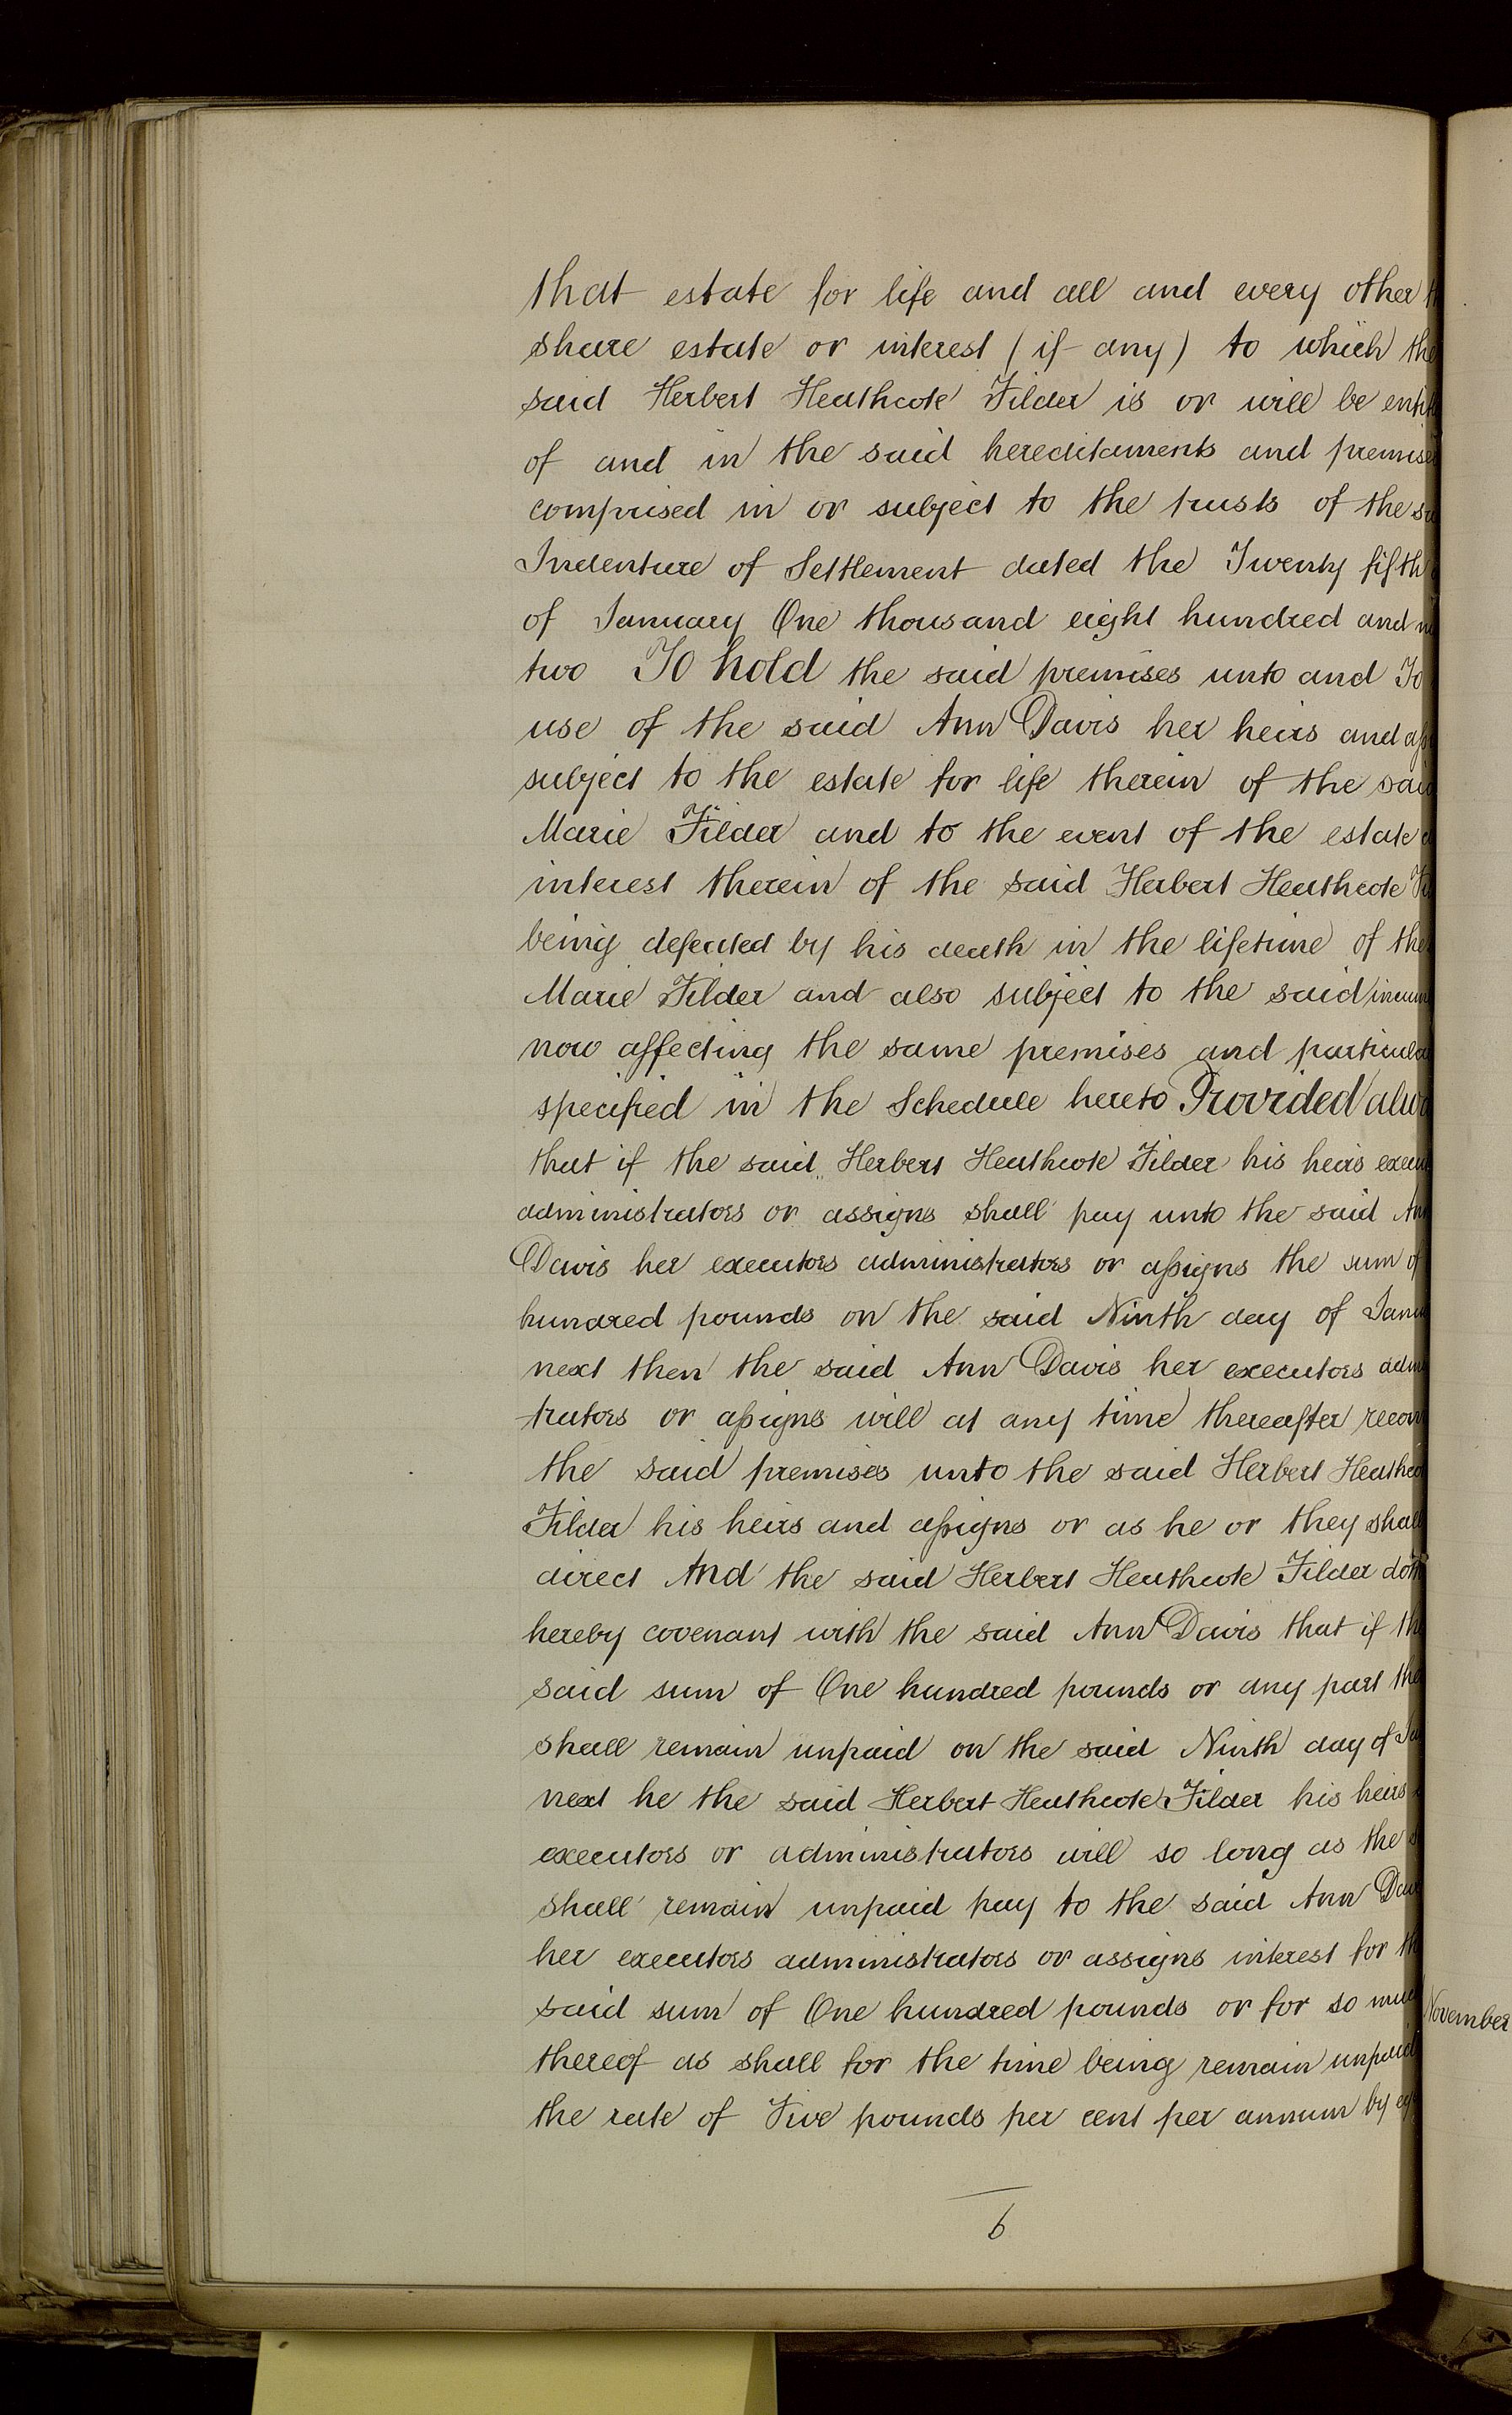 that estate for life and all and every other
share estate or interest (if any) to which the
said Herbert Heathcote Filder is or will be
of and in the said hereditaments and premises
comprised in or subject to the trusts of the
Indenture of Settlement dated the Twenty fifth
of January One thousand eight hundred and
two To hold the said premises unto and To
use of the said Ann Davis her heirs and
subject to the estate for life therein of the said
Marie Filder and to the event of the estate
interest therein of the said Herbert Heathcote
being defeated by his death in the lifetime of the
Marie Filder and also subject to the said
now affecting the same premises and
specified in the Schedule hereto Provided
that if the said Herbert Heathcote Filder his heirs
administrators or assigns shall pay unto the said Ann
Davis her executors administrators or assigns the sum of
hundred pounds on the said Ninth day of
next then the said Ann Davis her executors
trators or assigns will at any time thereafter
the said premises unto the said Herbert
Filder his heirs and assigns or as he or they shall
direct And the said Herbert Heathcote Filder doth
hereby covenant with the said Ann Davis that if the
said sum of One hundred pounds or any part
shall remain unpaid on the said Ninth day of
next he the said Herbert Heathcote Filder his heirs
executors or administrators will so long as the
shall remain unpaid pay to the said Ann
her executors administrators or assigns interest for the
said sum of One hundred pounds or for so
thereof as shall for the time being remain unpaid
the rate of Five pounds per cent per annum by
6
November